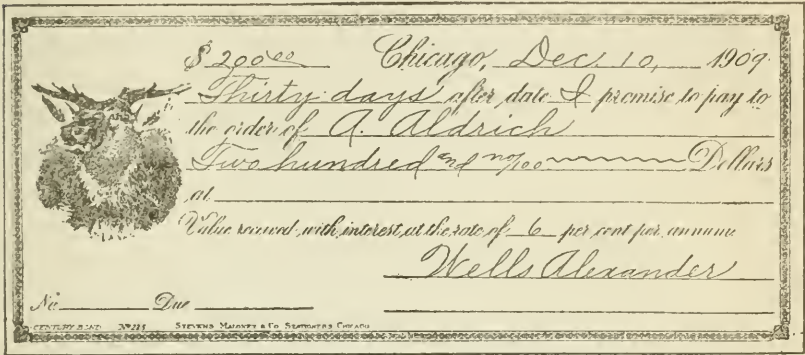 $ 200 00 Chicago, Dec. 10, 1909
Thirty days after date I promise to pay to
the order of A. Aldrich
Two hundred and no/100 Dollars
at
Value received, with interest, at the rate of 6 per cent per annum
Wells Alexander
No. Due
CENTURY BOND No 225 STEVENS MALONEY & CO STATIONERS CHICAGO